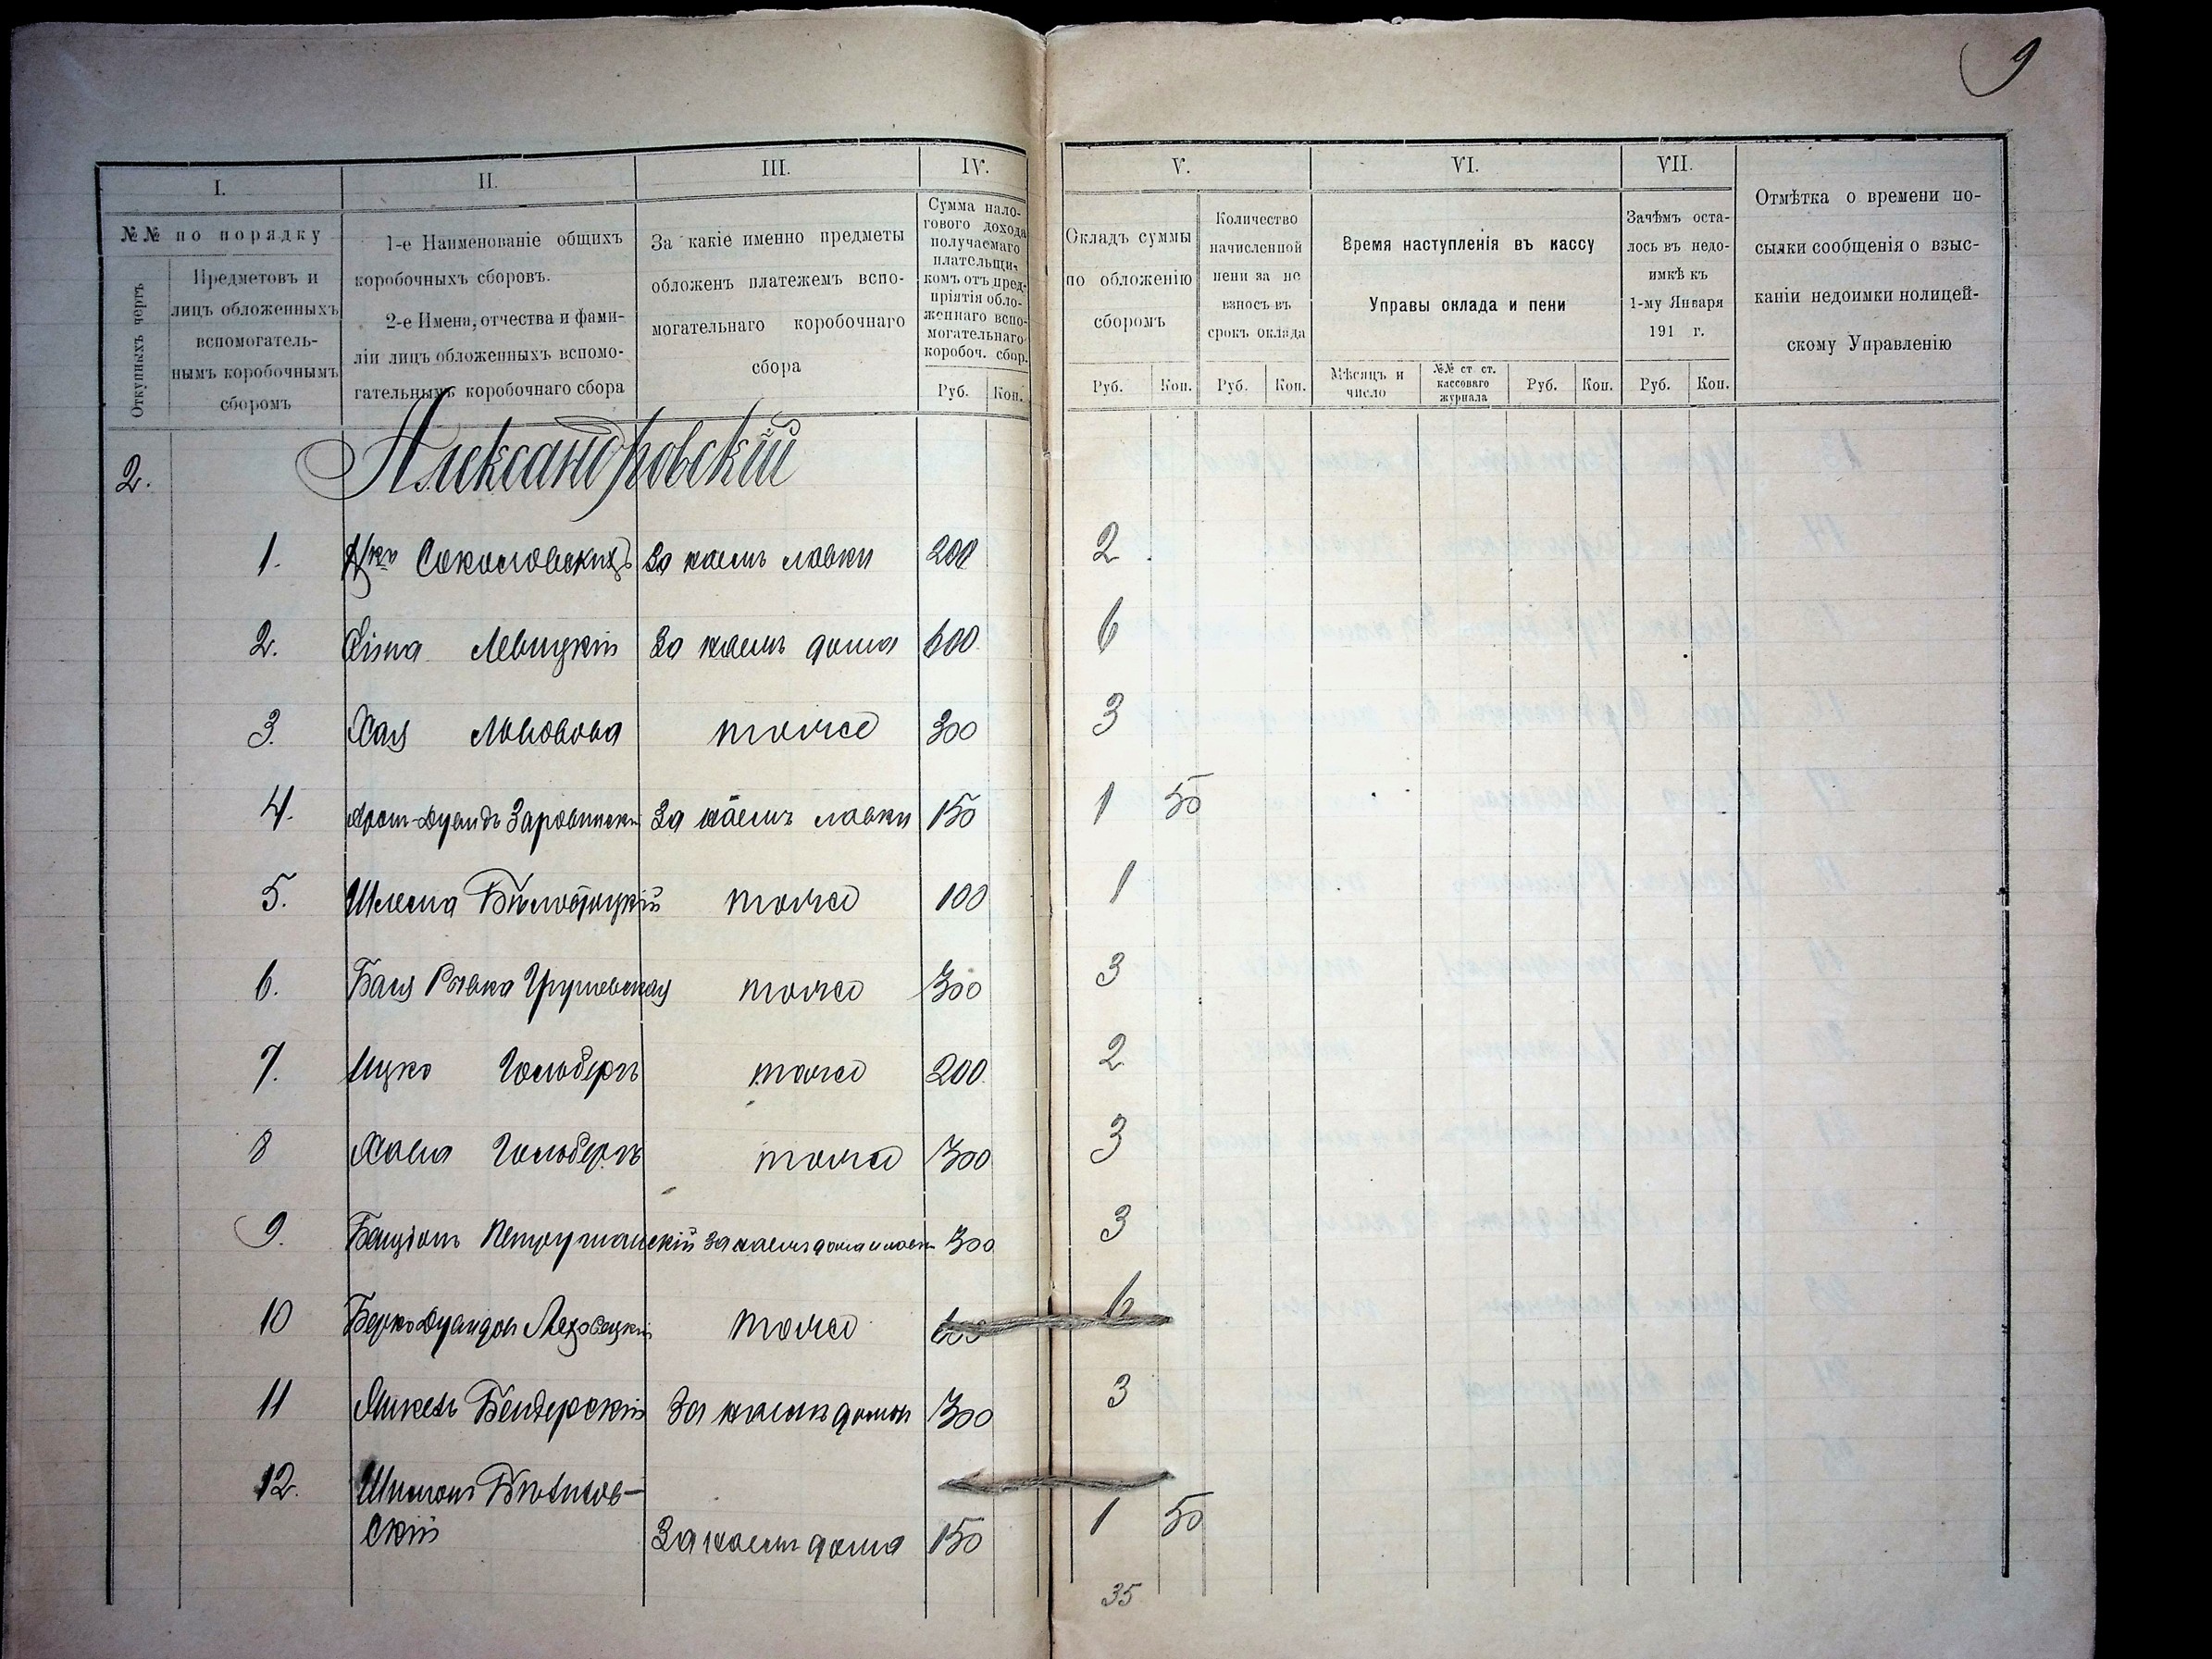 9
I.
II.
III.
IV.
V.
VI.
VII.
№№ по порядку
Откупныхъ чертъ
Предметовъ и
лицъ обложенныхъ
вспомогатель-
нымъ коробочнымъ
сборомъ
1-е Наименованіе общихъ
коробочныхъ сборовъ.
2-е Имена, отчества и фами-
ліи лицъ обложенныхъ вспомо-
гательныхъ коробочнаго сбора
За какіе именно предметы
обложенъ платежемъ вспо-
могательнаго коробочнаго
сбора
Сумма нало-
говаго дохода
получаемаго
плательщи-
комъ отъ пред-
пріятія обло-
женнаго вспо-
могательнаго
коробоч. сбор.
Руб. Коп.
Окладъ суммы
по обложенію
сборомъ
Руб. Коп.
Количество
начисленной
пени за не
взносъ въ
срокъ оклада
Руб. Коп.
Время наступленія въ кассу
Управы оклада и пени
Мѣсяцъ и
число
№№ ст. ст.
кассоваго
журнала
Руб. Коп.
Зачѣмъ оста-
лось въ недо-
имкѣ къ
1-му Января
191 г.
Руб. Коп.
Отмѣтка о времени по-
сылки сообщенія о взыс-
каніи недоимки полицей-
скому Управленію
2. Александровскій
1. Соколовскихъ За наемъ лавки 200 2
2. Левицкій За наемъ дома 600 6
3. Хая Львовова тоже 300 3
4. За наемъ лавки 150 1 50
5. Шлема Бѣлоцкій тоже 100 1
6. Бася Ривка Грушевская тоже 300 3
7. Ицко Гольберъ тоже 200 2
8 Гольберъ тоже 300 3
9. За наемъ дома и лавки 300 3
10 Берко тоже 600 6
11 Бендерскій За наемъ дома 300 3
12. Шимонъ
скій За наемъ дома 150 1 50
35